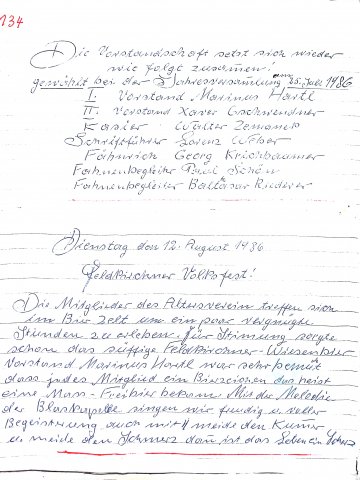 134
Die Vorstandschaft setzt sich wieder
wie folgt zusamen!
gewählt bei der Jahresversamlung am 25. Juli 1986
I. Vorstand Marinus Hartl
II. Vorstand Xaver Gschwendner
Kasier Walter Zemanek
Schriftführer Lorenz Weber
Fähnrich Georg Kirchbaumer
Fahnenbegleiter Paul Schön
Fahnenbegleiter Baltasar Riederer
Dienstag den 12. August 1986
Feldkirchner Volksfest!
Die Mitglieder des Altersverein treffen sich
im Bier Zelt um ein paar vergnügte
Stunden zu erleben. Für Stimung sorgte
schon das süffige Feldkirchner-Wiesenbier
Vorstand Marinus Hartl war sehr bemüt
dass jedes Mitglied ein Bierzeichen das heist
eine Mass-Freibier bekam. Mit der Melodie
der Blaskapelle singen wir freudig u. voller
Begeisterung auch mit meide den Kumer
u. meide den Schmerz dan ist das Leben ein Scherz